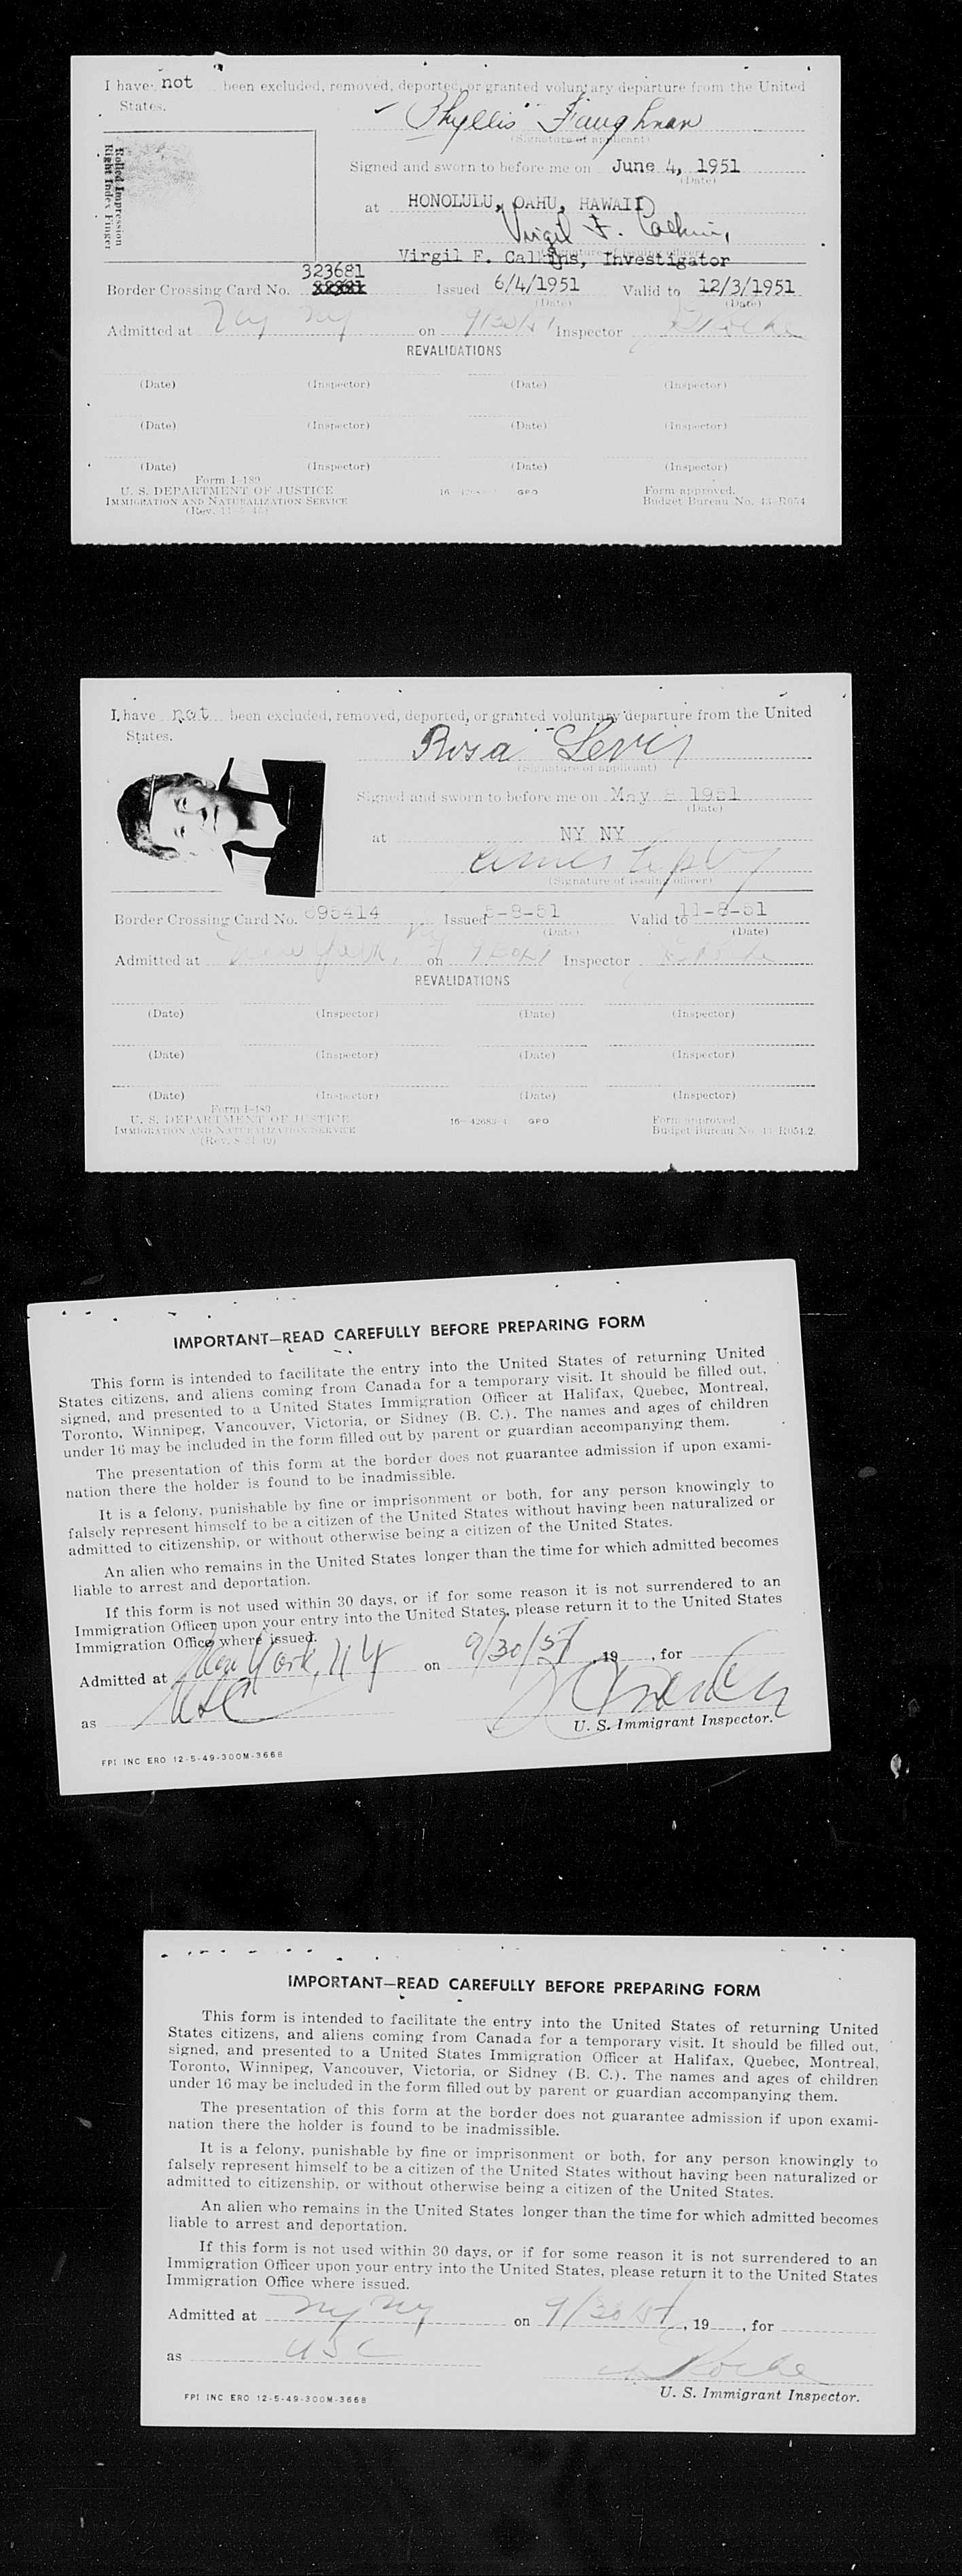 I have not been excluded, removed, deported, or granted voluntary departure from the United
States.
Phyllis Faughnan
(Signature of applicant)
Rolled Impression
Right Index Finger
Signed and sworn to before me on June 4, 1951
(Date)
at HONOLULU, OAHU, HAWAII
Virgil F. Calkins
Virgil F. Calkins, Investigator
323681
Border Crossing Card No. Issued 6/4/1951 Valid to 12/3/1951
(Date) (Date)
Admitted at NY NY on 9/30/51 Inspector
REVALIDATIONS
(Date) (Inspector) (Date) (Inspector)
(Date) (Inspector) (Date) (Inspector)
(Date) (Inspector) (Date) (Inspector)
Form I-189
U. S. DEPARTMENT OF JUSTICE
IMMIGRATION AND NATURALIZATION SERVICE
(Rev.
GPO
Form approved.
Budget Bureau No. 43-R054
I have not been excluded, removed, deported, or granted voluntary departure from the United
States.
Rosa Levin
(Signature of applicant)
Signed and sworn to before me on May 8 1951
(Date)
at NY NY
(Signature of issuing officer)
Border Crossing Card No. 695414 Issued 5-8-51 Valid to 11-8-51
(Date) (Date)
Admitted at New York, NY on 9/30/51 Inspector
REVALIDATIONS
(Date) (Inspector) (Date) (Inspector)
(Date) (Inspector) (Date) (Inspector)
(Date) (Inspector) (Date) (Inspector)
Form I-189
U. S. DEPARTMENT OF JUSTICE
IMMIGRATION AND NATURALIZATION SERVICE
16—42683-4 GPO
Form approved.
Budget Bureau No. 43-R054.2.
IMPORTANT—READ CAREFULLY BEFORE PREPARING FORM
This form is intended to facilitate the entry into the United States of returning United
States citizens, and aliens coming from Canada for a temporary visit. It should be filled out,
signed, and presented to a United States Immigration Officer at Halifax, Quebec, Montreal,
Toronto, Winnipeg, Vancouver, Victoria, or Sidney (B. C.). The names and ages of children
under 16 may be included in the form filled out by parent or guardian accompanying them.
The presentation of this form at the border does not guarantee admission if upon exami-
nation there the holder is found to be inadmissible.
It is a felony, punishable by fine or imprisonment or both, for any person knowingly to
falsely represent himself to be a citizen of the United States without having been naturalized or
admitted to citizenship, or without otherwise being a citizen of the United States.
An alien who remains in the United States longer than the time for which admitted becomes
liable to arrest and deportation.
If this form is not used within 30 days, or if for some reason it is not surrendered to an
Immigration Officer upon your entry into the United States, please return it to the United States
Immigration Office where issued.
Admitted at New York, NY on 9/30/51, 19 , for
as USC
U. S. Immigrant Inspector.
FPI INC ERO 12-5-49-300M-3668
IMPORTANT—READ CAREFULLY BEFORE PREPARING FORM
This form is intended to facilitate the entry into the United States of returning United
States citizens, and aliens coming from Canada for a temporary visit. It should be filled out,
signed, and presented to a United States Immigration Officer at Halifax, Quebec, Montreal,
Toronto, Winnipeg, Vancouver, Victoria, or Sidney (B. C.). The names and ages of children
under 16 may be included in the form filled out by parent or guardian accompanying them.
The presentation of this form at the border does not guarantee admission if upon exami-
nation there the holder is found to be inadmissible.
It is a felony, punishable by fine or imprisonment or both, for any person knowingly to
falsely represent himself to be a citizen of the United States without having been naturalized or
admitted to citizenship, or without otherwise being a citizen of the United States.
An alien who remains in the United States longer than the time for which admitted becomes
liable to arrest and deportation.
If this form is not used within 30 days, or if for some reason it is not surrendered to an
Immigration Officer upon your entry into the United States, please return it to the United States
Immigration Office where issued.
Admitted at NY NY on 9/30/51, 19 , for
as USC
U. S. Immigrant Inspector.
FPI INC ERO 12-5-49-300M-3668